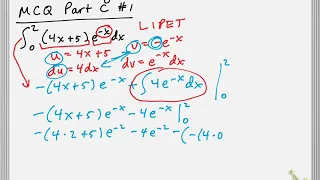 MCQ Part C #1
∫₀² (4x+5) e^-x dx
LIPET
u = 4x+5 v = -e^-x
du = 4dx dv = e^-x dx
-(4x+5) e^-x - -∫ 4e^-x dx |₀²
-(4x+5) e^-x - 4e^-x |₀²
-(4·2+5) e^-2 - 4e^-2 - (-(4·0